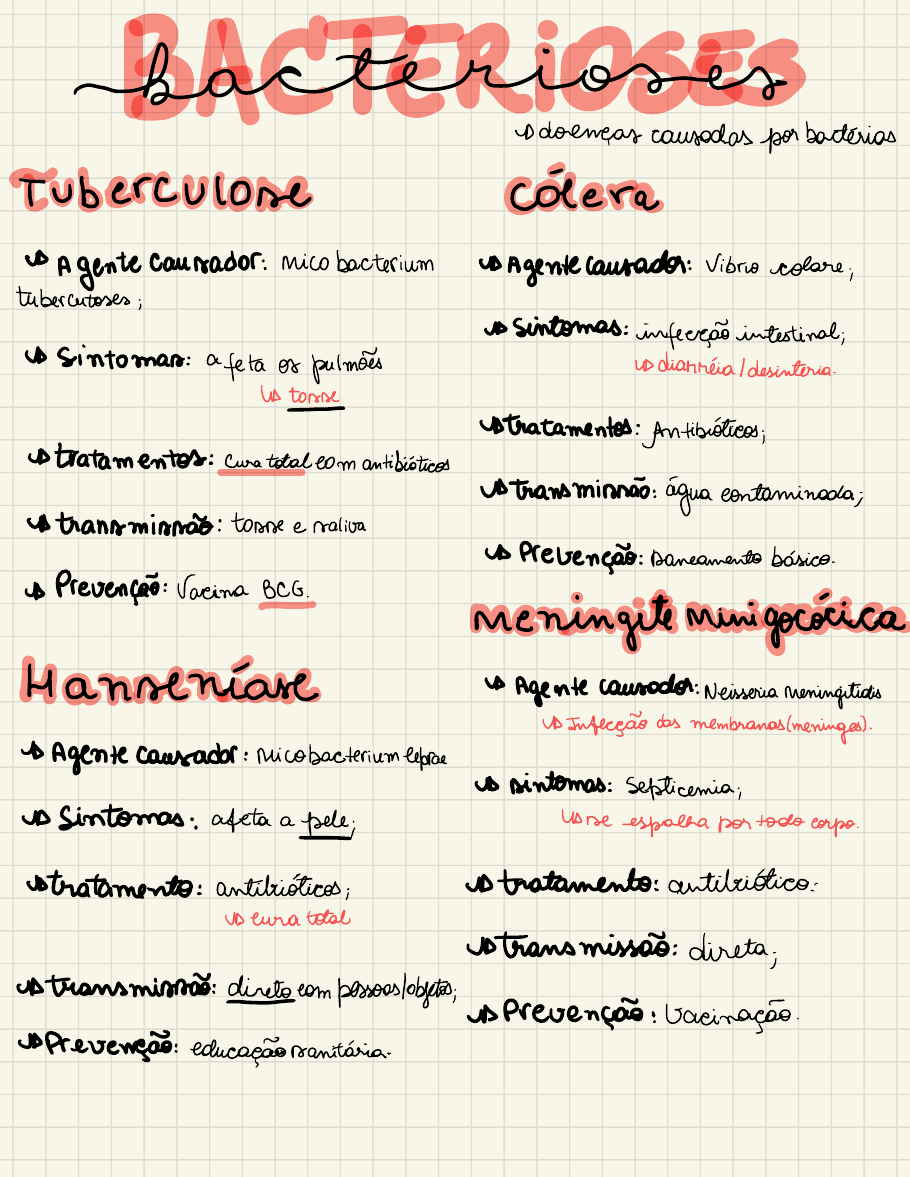 BACTERIOSES
bacterioses
↳ doenças causadas por bactérias
Tuberculose
↳ Agente causador: Micobacterium
tuberculoses;
↳ Sintomas: afeta os pulmões
↳ tosse
↳ tratamentos: Cura total com antibióticos
↳ transmissão: tosse e saliva
↳ Prevenção: Vacina BCG.
Hanseníase
↳ Agente causador: Micobacterium leprae
↳ Sintomas: afeta a pele;
↳ tratamento: antibióticos;
↳ cura total
↳ transmissão: direto com pessoas/objetos;
↳ Prevenção: educação sanitária.
Cólera
↳ Agente causador: Vibrio colare;
↳ Sintomas: infecção intestinal;
↳ diarréia/desinteria.
↳ tratamentos: Antibióticos;
↳ transmissão: água contaminada;
↳ Prevenção: Saneamento básico.
Meningite Minigocócica
↳ Agente causador: Neisseria Meningitidis
↳ Infecção das membranas(meninges).
↳ sintomas: Septicemia;
↳ se espalha por todo corpo.
↳ tratamento: antibiótico.
↳ transmissão: direta;
↳ Prevenção: Vacinação.